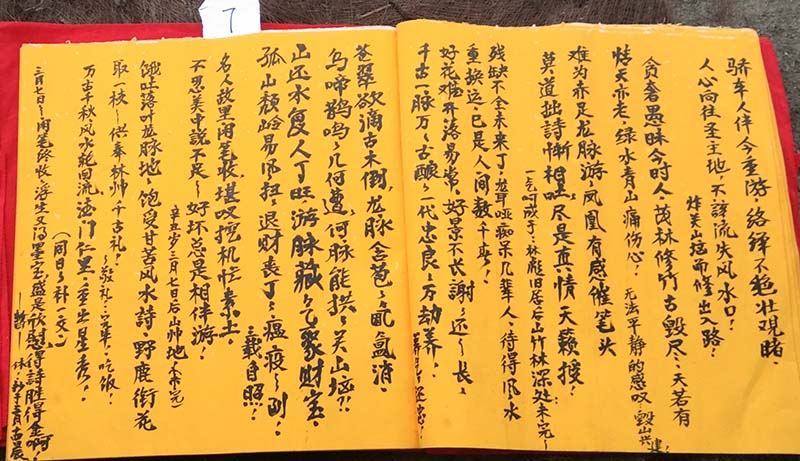 7
骄车人伴今重游，络绎不绝壮观睹，
人心向往圣主地，不该流失风水口！
炸关山垴而修出一路！
贪奢愚昧今时人，茂林修竹古毁尽，天若有
情天亦老，绿水青山痛伤心！
无法平静的感叹，毁山兴建！
难为赤足龙脉游，凤凰有感催笔头
莫道拙詩惭相嘘，尽是真情天籁授！
一气呵成于：林彪旧居后山竹林深处未完
残缺不全未来丁，龙聋哑痴呆几辈人，待得风水
重换运，已是人间数千年！
好花难开落易常，好景不长謝还长，
千古一脉万古酿，一代忠良万劫养！
苍翠欲滴古木倒，龙脉含苞氤氲消，
乌啼鹊鸣几何遭，何脉能拱关山垴？！
山还水复人丁旺，游脉藏气聚财宝，
孤山颓岭易风扭，退财丧丁瘟疫到！
载自照！
名人故里闲笔收，堪叹挖机忙素土，
不思美中说不足，好坏总是相伴游！
辛丑岁三月七日后山帅地（未完）
饿吐落叶龙脉地，饱受甘苦风水詩，野鹿衔花
取一枚，供奉林帅千古礼！
敬礼，完毕，吃饭！
万古千秋风水轮回流，法门仁里，重出星秀！
（同日补一文）
三月七日闲笔终收，潘生又问墨宝，盛是欣慰，得詩胜得金啊！